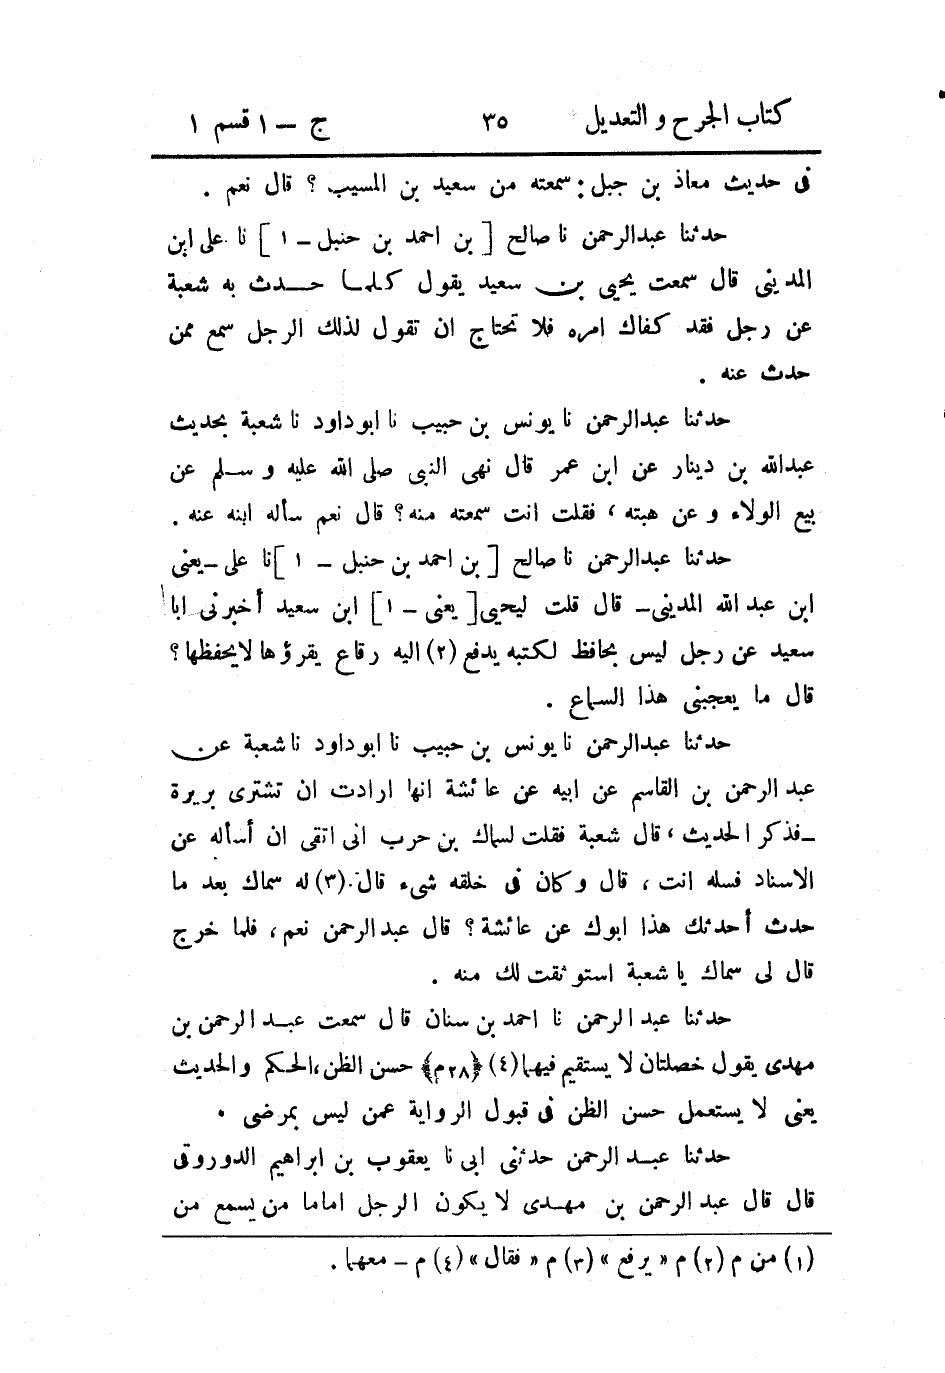 كتاب الجرح و التعديل ٣٥ ج – ١ قسم ١
فى حديث معاذ بن جبل : سمعته من سعيد بن المسيب ؟ قال نعم .
حدثنا عبدالرحمن نا صالح [ بن احمد بن حنبل – ١ ] نا على ابن
المدينى قال سمعت يحيى بن سعيد يقول كلما حدث به شعبة
عن رجل فقد كفاك امره فلا تحتاج ان تقول لذلك الرجل سمع ممن
حدث عنه .
حدثنا عبدالرحمن نا يونس بن حبيب نا ابو داود نا شعبة بحديث
عبدالله بن دينار عن ابن عمر قال نهى النبى صلى الله عليه و سلم عن
بيع الولاء و عن هبته ، فقلت انت سمعته منه ؟ قال نعم سأله ابنه عنه .
حدثنا عبدالرحمن نا صالح [ بن احمد بن حنبل – ١ ] نا على – يعنى
ابن عبد الله المدينى – قال قلت ليحيى [ يعنى – ١ ] ابن سعيد أخبرنى ابا
سعيد عن رجل ليس بحافظ لكتبه يدفع (٢) اليه رقاع يقرؤها لايحفظها ؟
قال ما يعجبنى هذا السماع .
حدثنا عبدالرحمن نا يونس بن حبيب نا ابو داود نا شعبة عن
عبد الرحمن بن القاسم عن ابيه عن عائشة انها ارادت ان تشترى بريرة
– فذكر الحديث ، قال شعبة فقلت لسماك بن حرب انى اتقى ان أسأله عن
الاسناد فسله انت ، قال وكان فى خلقه شىء قال (٣) له سماك بعد ما
حدث أحدثك هذا ابوك عن عائشة ؟ قال عبد الرحمن نعم ، فلما خرج
قال لى سماك يا شعبة استوثقت لك منه .
حدثنا عبد الرحمن نا احمد بن سنان قال سمعت عبد الرحمن بن
مهدى يقول خصلتان لا يستقيم فيهما (٤) ﴿٢٨م﴾ حسن الظن ، الحكم والحديث
يعنى لا يستعمل حسن الظن فى قبول الرواية عمن ليس بمرضى .
حدثنا عبد الرحمن حدثنى ابى نا يعقوب بن ابراهيم الدوروقى
قال قال عبد الرحمن بن مهدى لا يكون الرجل اماما من يسمع من
(١) من م (٢) م « يرفع » (٣) م « فقال » (٤) م – معهما .